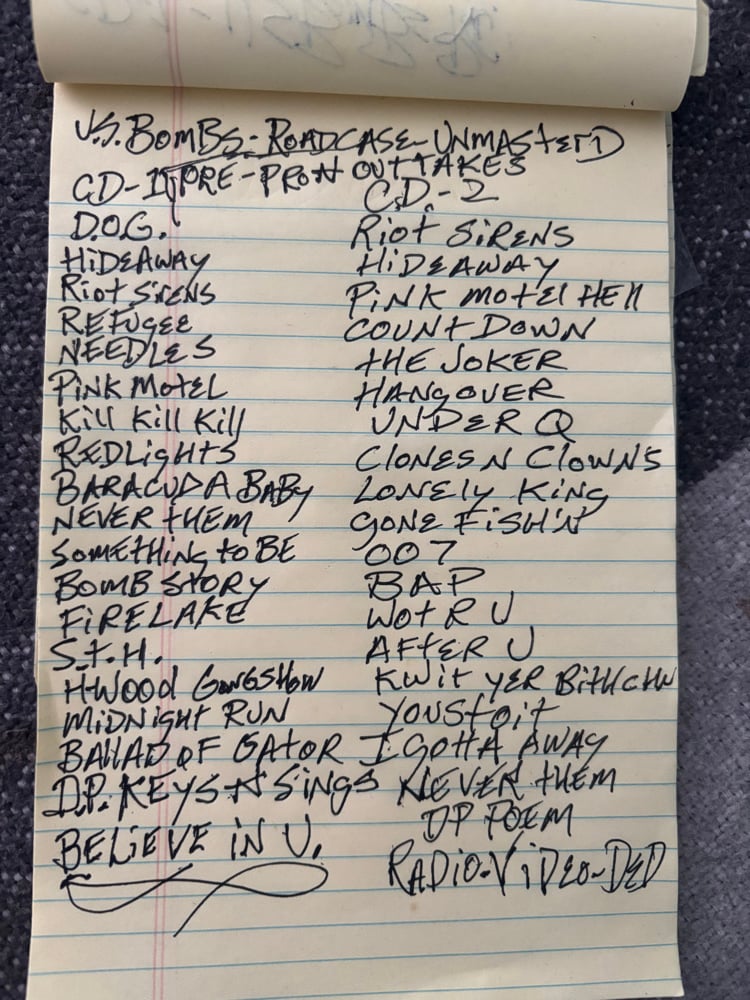 U.S. BOMBS - ROADCASE - UNMASTERD
CD-1 PRE-PRON OUTTAKES
C.D.-2
D.O.G.
HiDEAWAY
Riot SiRENS
REFUgEE
NEEDLES
PiNK MotEL
Kill Kill Kill
REDLigHtS
BARACUDA BABy
NEVER tHEM
SOMEtHiNg to BE
BOMB StORY
FiRELAKE
S.t.H.
H-WOOD GONGSHOW
MiDNigHt RUN
BAllAD OF GAtOR
D.P. KEYS N SiNgS
BELiEVE iN U.
Riot SiRENS
HiDEAWAY
PiNK MotEl HEll
COUNt DOWN
tHE JOKER
HANgOVER
UNDER Q
ClONES N ClOWNS
LONELY KiNg
gONE FiSH'N
007
BAP
WOt R U
AFtER U
KWit YER BitHCHN
YOUStOit
I GOttA AWAY
NEVER tHEM
DP POEM
RADiO-ViDEO-DED